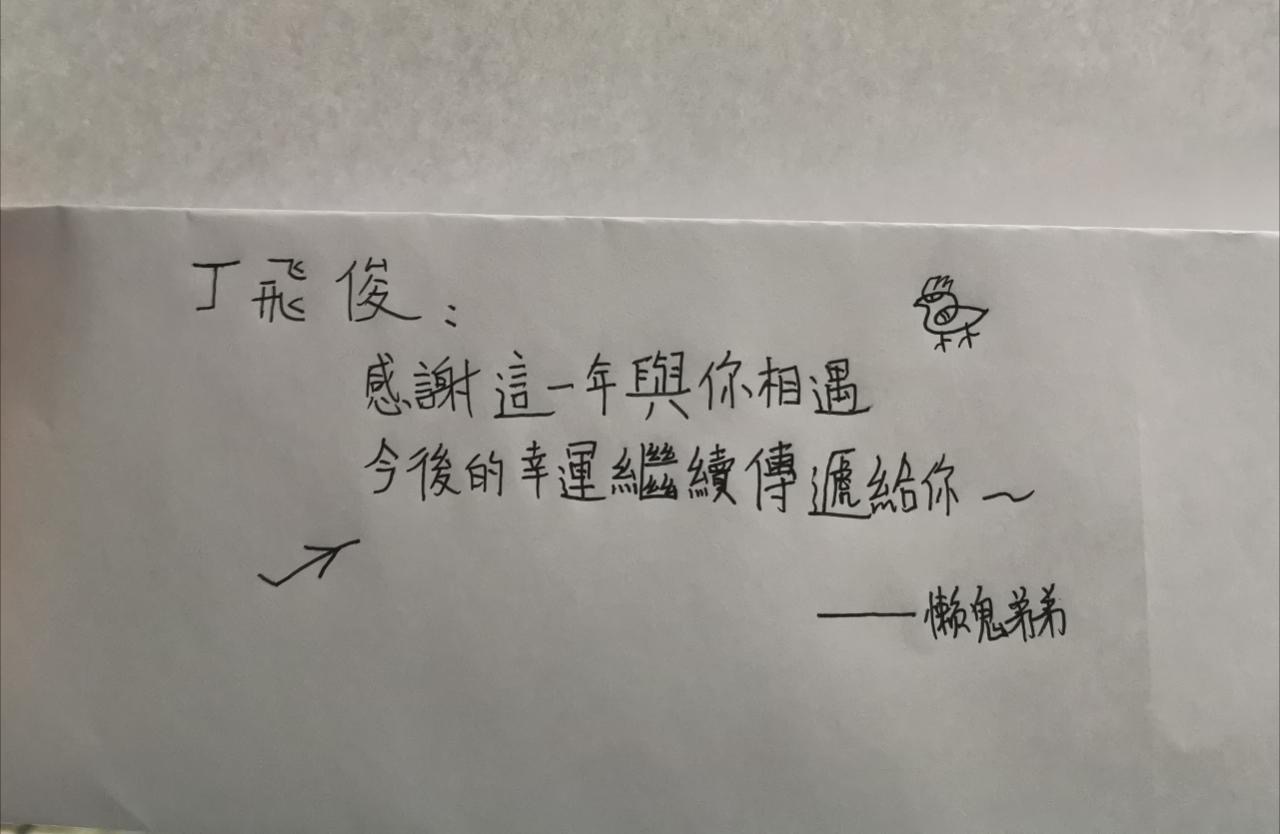 丁飛俊：
感謝這一年與你相遇
今後的幸運繼續傳遞給你～
——懶鬼弟弟